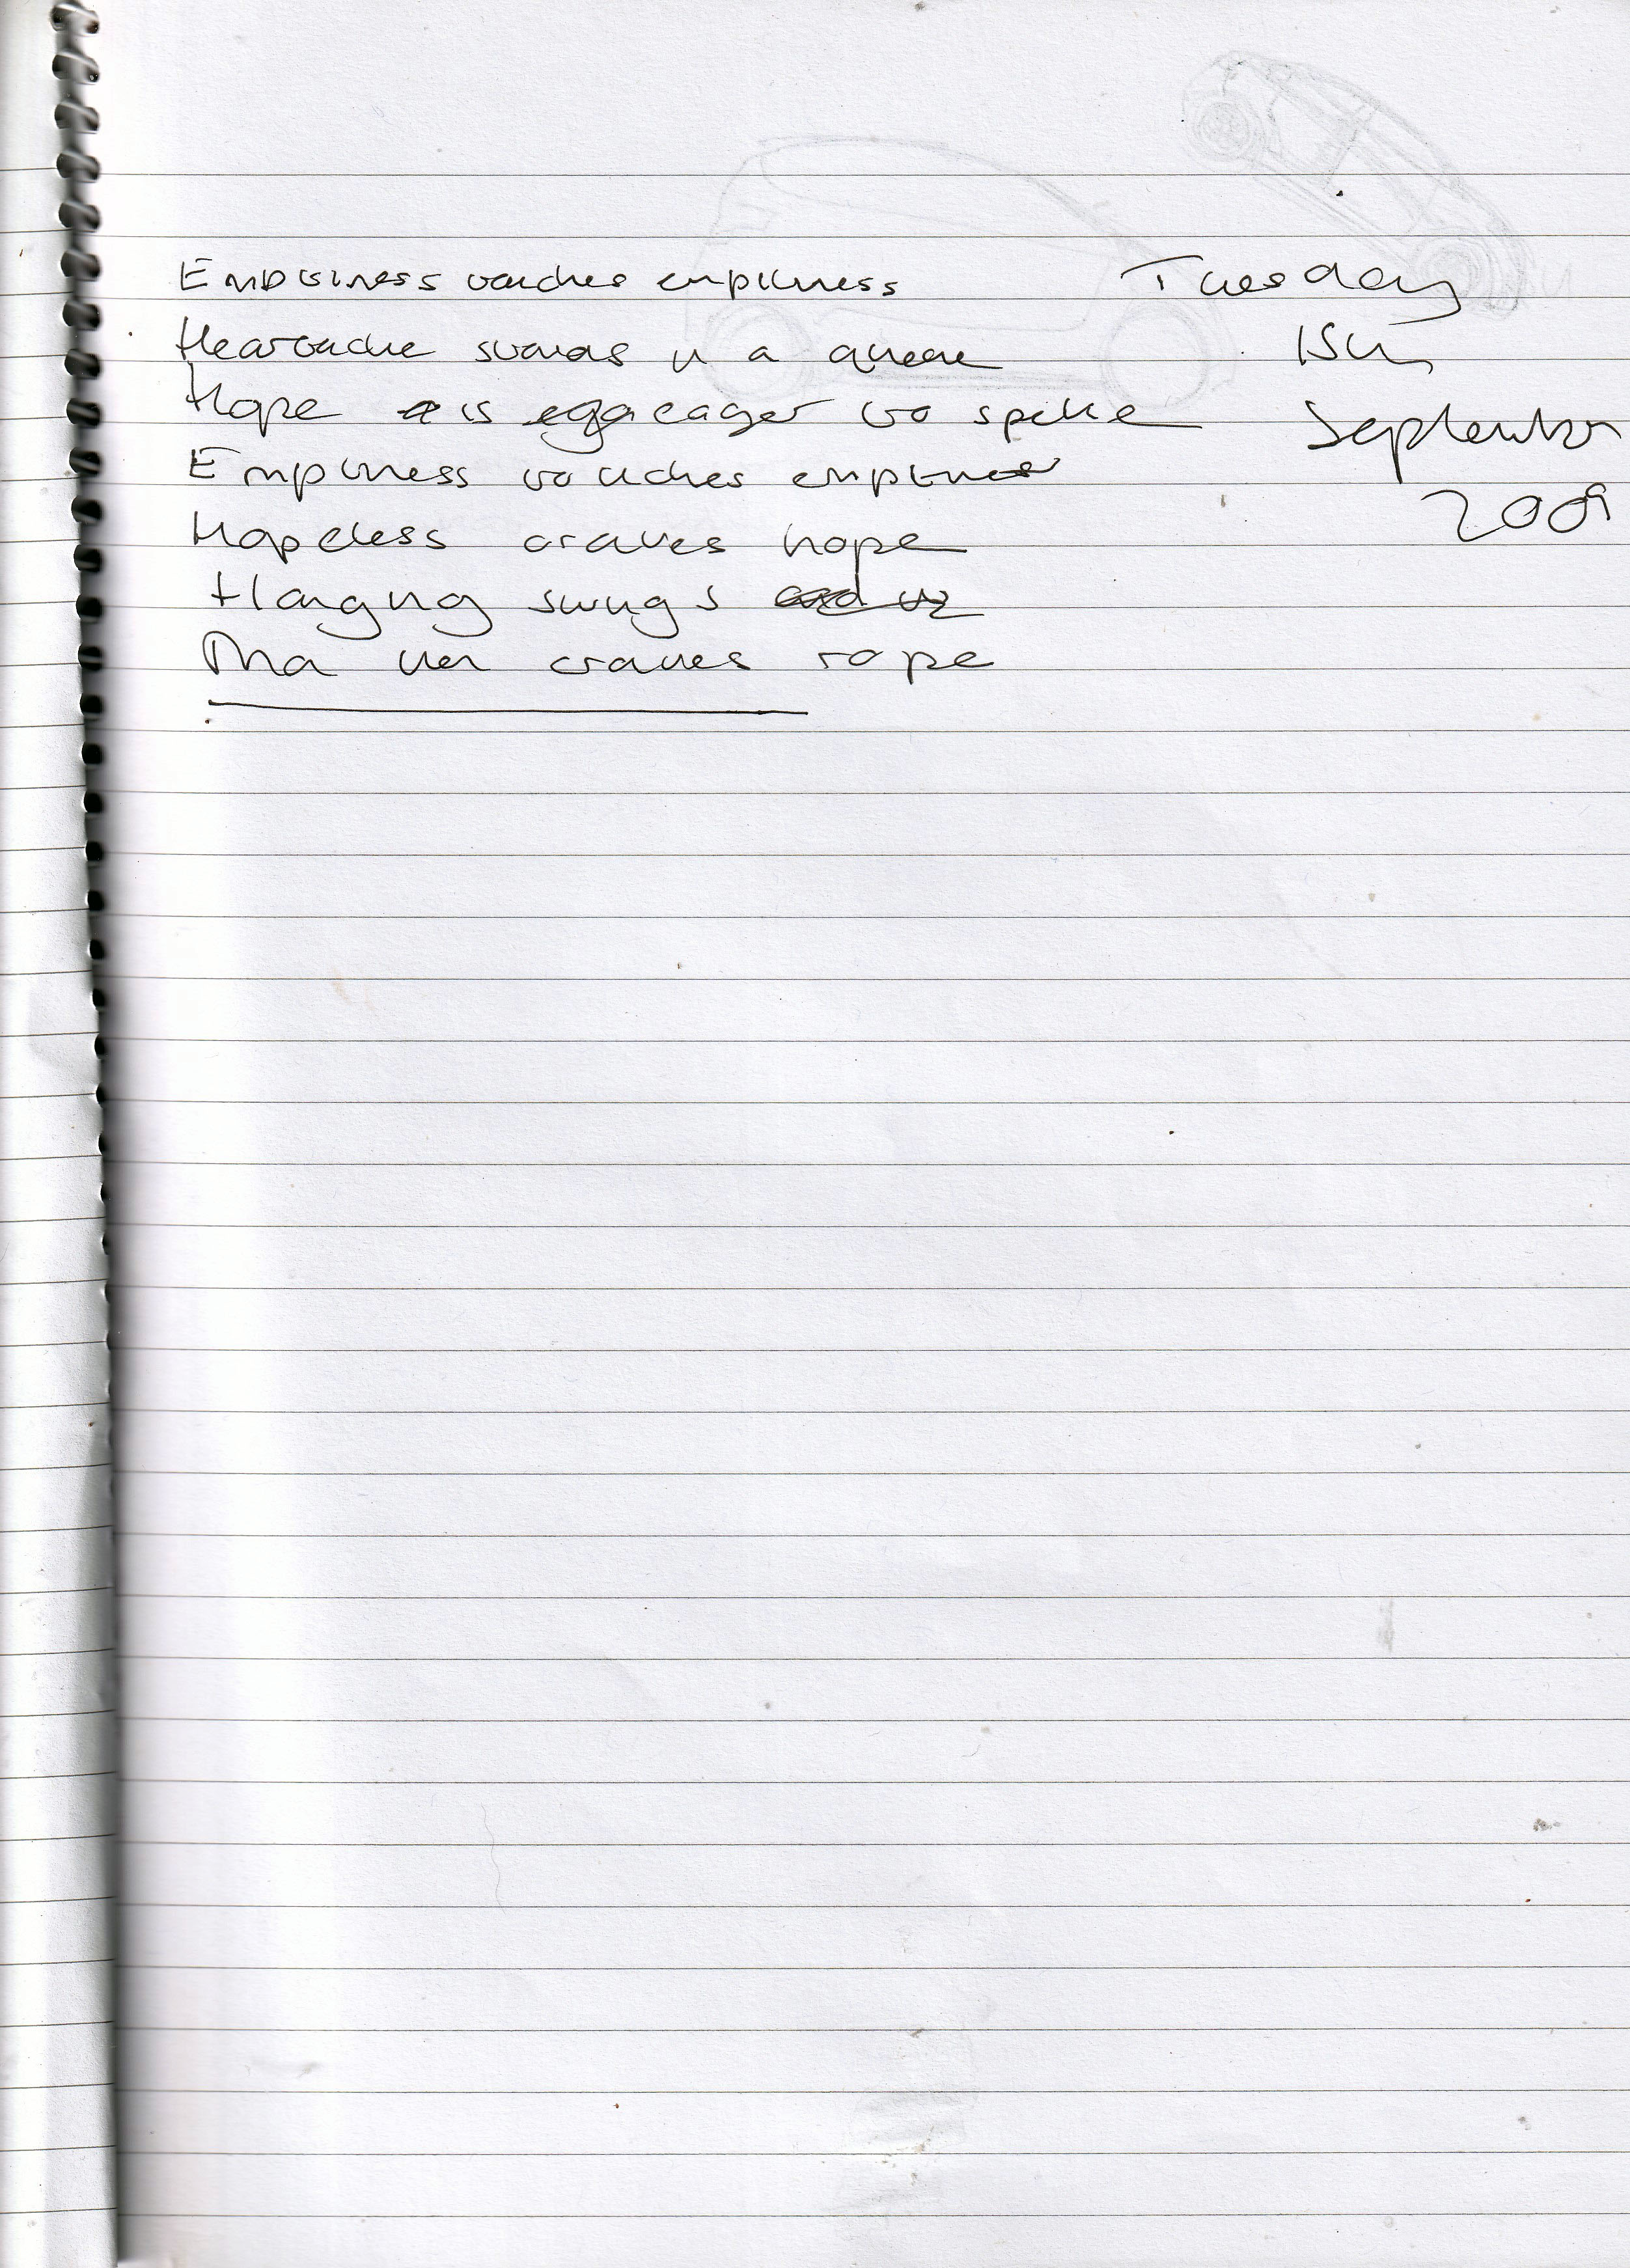 Emptiness touches emptiness
Heartache stands in a queue
Hope is eager to spike
Emptiness touches emptiness
Hopeless craves hope
Hanging swings
craves rope
Tuesday
15th
September
2009